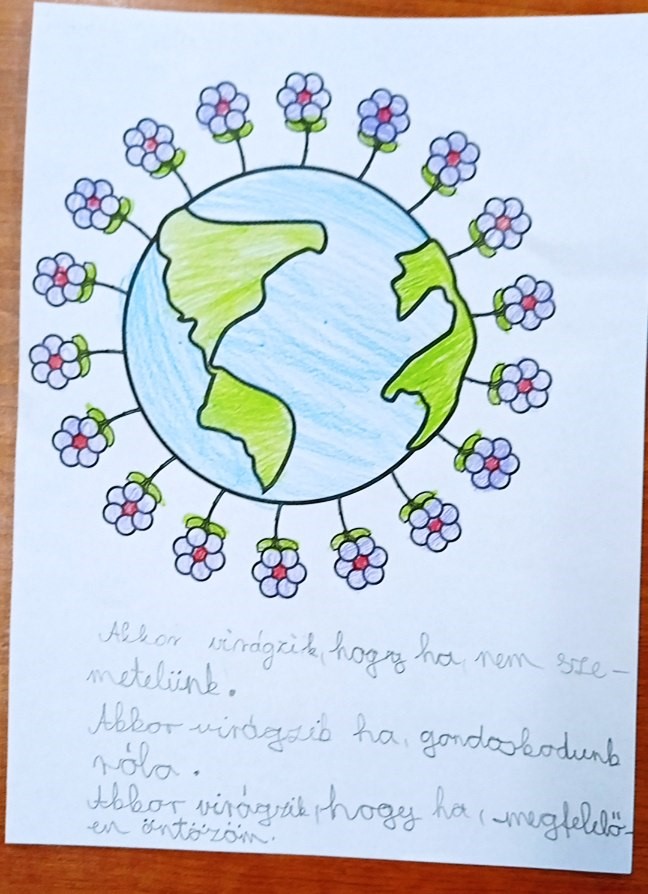 Akkor virágzik, hogy ha, nem sze-
metelünk.
Akkor virágzik ha, gondoskodunk
róla.
Akkor virágzik, hogy ha, megfelelő-
en öntözöm.